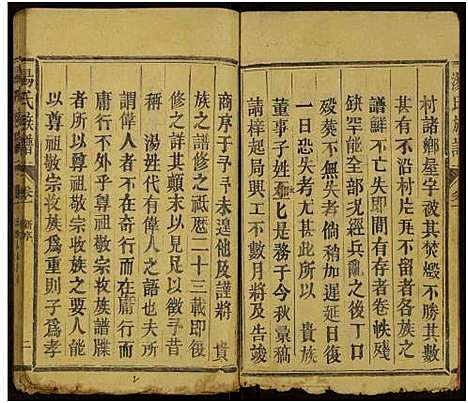 村諸鄉屋宇被其焚燬不計其數
有若不沾村片瓦不留者各族之
譜鮮不亡於兵燹者卷帙殘
缺罕能全部況經兵亂之後丁口
殁葬不失者倘稍加遲延日後
一日恐失考尤甚此所以 貴族
董事子姓匕是務于今秋彙稿
請梓起局興工不數月將及告竣
商序于予予未遑他及謹將 貴
族之譜修之祇愿二十三載即後
修之詳其顛末以見以徵予
稱 湯姓代有偉人之語所
謂偉人者不可以外而求在人即
庸行不外乎尊祖敬宗收族譜牒
即尊祖敬宗收族之要人能
以尊祖敬宗收族為重則子為孝
湯氏族譜 卷一 新序 二